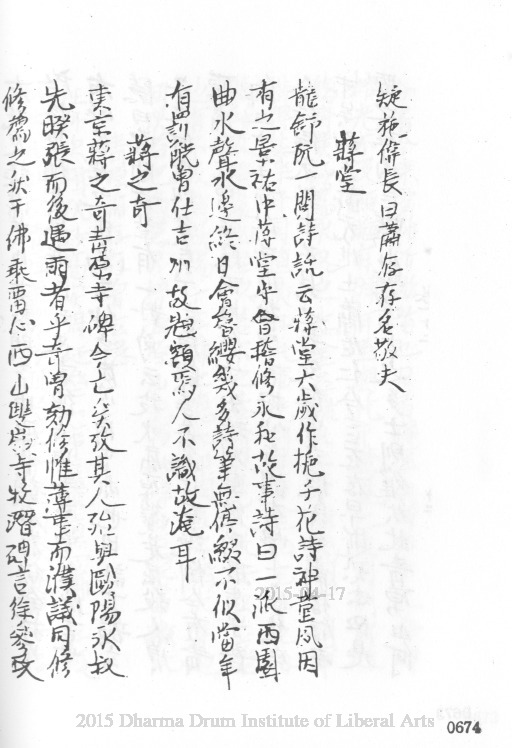 疑施俳長曰蕭存存名敬夫
蔣堂
龍舒阮一閱詩話云蔣堂大歲作梔子花詩神童風因
有之景祐中蔣堂守會稽修永和故事詩曰一派西園
曲水聲水邊終日會簪纓幾多詩筆無停綴不似當年
有罰觥曾仕吉州故題額焉人不識故耳
蔣之奇
東京蔣之奇寺碑今亡矣攷其人殆與歐陽永叔
先暌張而後遇雨者乎奇曾劾修惟薄事而濮議同修
修齋之狀千佛乘雷心西山雙嶺寺牧潛碑言徐參政
2015-04-17
2015 Dharma Drum Institute of Liberal Arts
0674